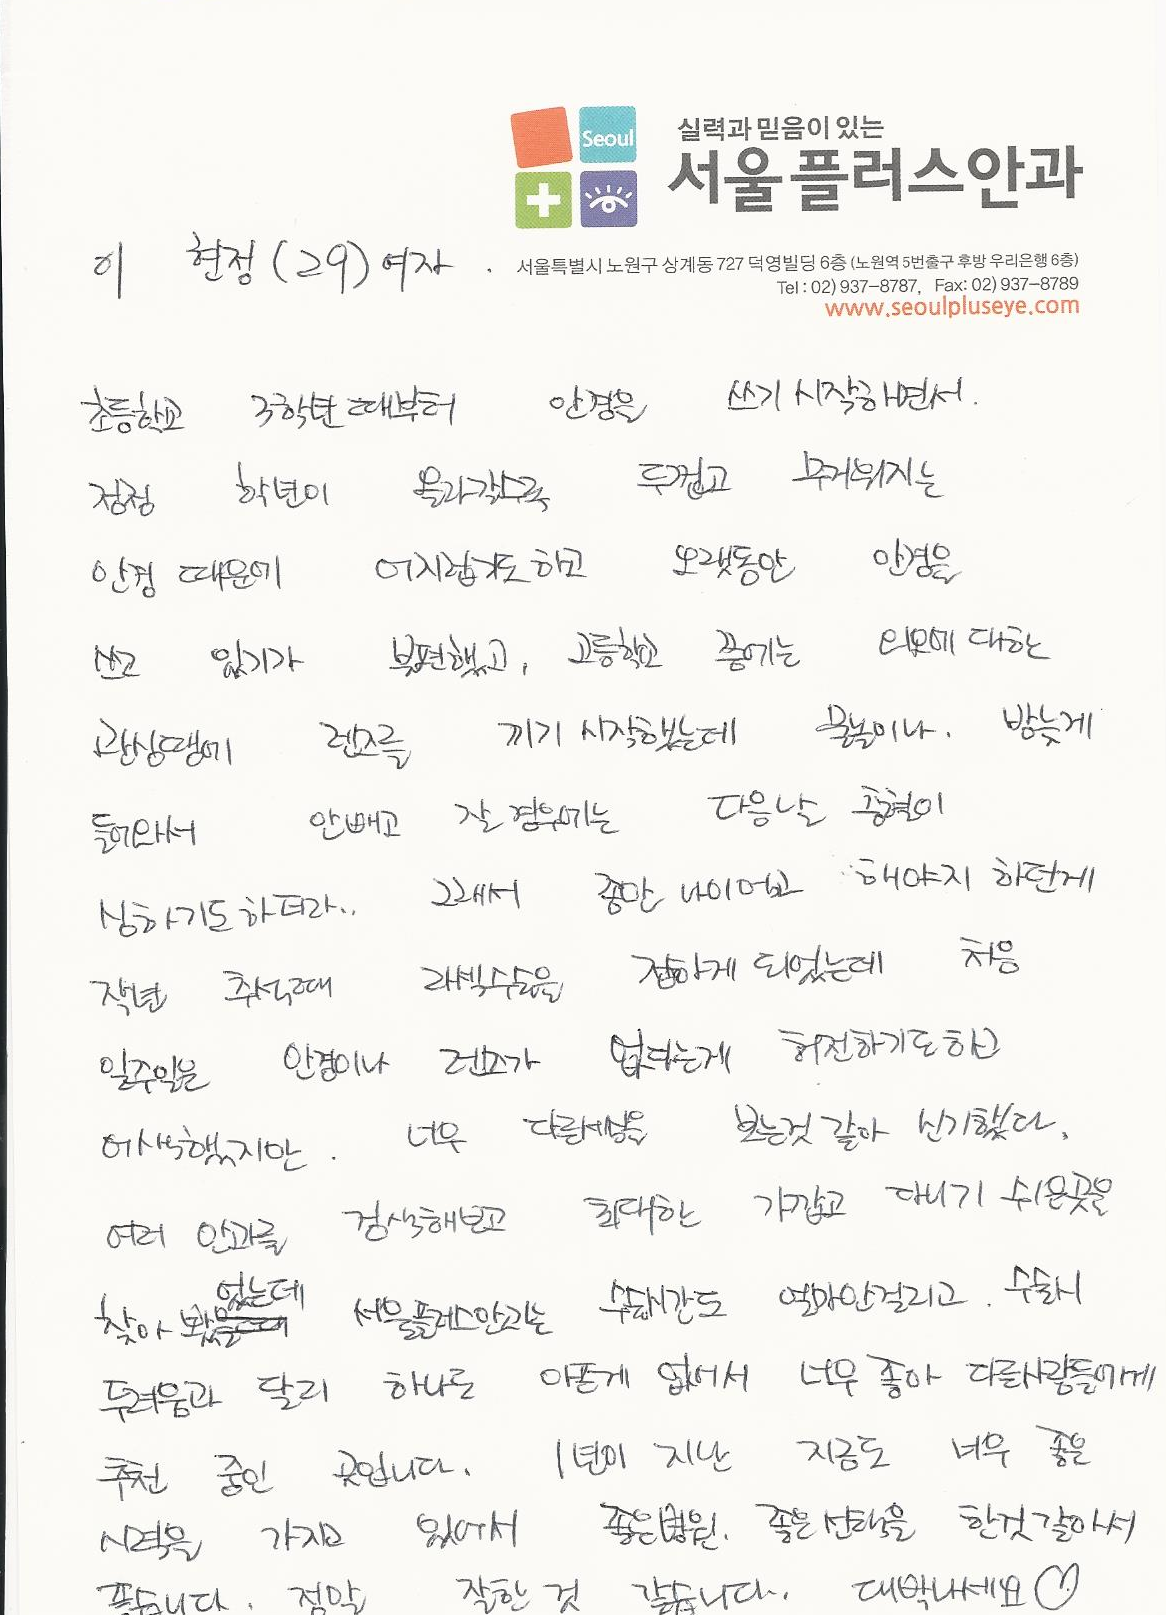 Seoul
실력과 믿음이 있는
서울플러스안과
이 현정 (29) 여자 .
서울특별시 노원구 상계동 727 덕영빌딩 6층 (노원역 5번출구 후방 우리은행 6층)
Tel : 02) 937-8787, Fax: 02) 937-8789
www.seoulpluseye.com
초등학교 3학년때부터 안경을 쓰기 시작하면서.
점점 학년이 올라갈수록 두껍고 무거워지는
안경 때문에 어지럽기도 하고 오랫동안 안경을
쓰고 있기가 불편했고, 고등학교 쯤에는 외모에 대한
관심땜에 렌즈를 끼기 시작했는데 물놀이나. 밤늦게
들어와서 안빼고 잘 경우에는 다음날 충혈이
심하기도 하더라.. 그래서 좀만 나이먹고 해야지 하던게
작년 추석때 라섹수술을 접하게 되었는데 처음
일주일은 안경이나 렌즈가 없다는게 허전하기도 하고
어색했지만. 너무 다른세상을 보는것 같아 신기했다.
여러 안과를 검색해보고 최대한 가깝고 다니기 쉬운곳을
찾아 봤었는데 서울플러스안과는 수술시간도 얼마안걸리고. 수술시
두려움과 달리 하나도 아픈게 없어서 너무 좋아 다른사람들에게
추천 중인 곳입니다. 1년이 지난 지금도 너무 좋은
시력을 가지고 있어서 좋은병원. 좋은 선택을 한것 같아서
좋습니다. 정말 잘한 것 같습니다. 대박나세요♡